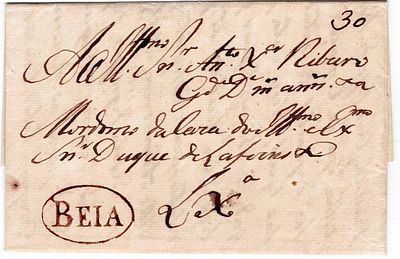 30
Ao Illmo Snr. Anto Xer Ribaro
Gde De ms anns
Mordomo da Caza do Illmo e Exmo
Snr Duque de Lafoins
BEIA
Lxa